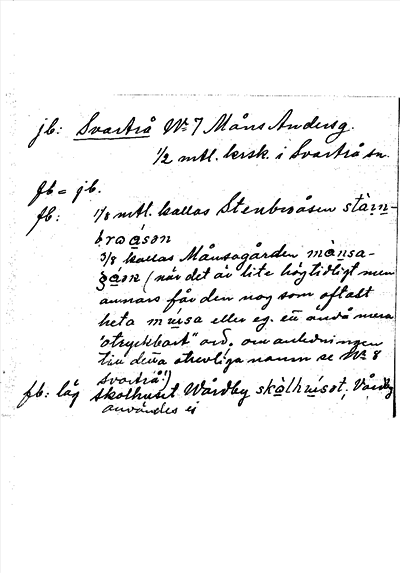 jb: Svartrå No 7 Måns Andersg.
1/2 mtl. krsk. i Svartrå sn.
Jb = jb.
fb: 1/8 mtl. kallas Stenbråsen
3/8 kallas Månsagården månsa-
(när det är lite högtidligt men
annars får den nog som oftast
heta musa eller eg. ett ändå mera
"otryckbart" ord, om anledningen
till detta otrevliga namn se No 8
Svartrå!)
fb: låg skolhuset Wårdby skolhuset; Vårdby
användes ej